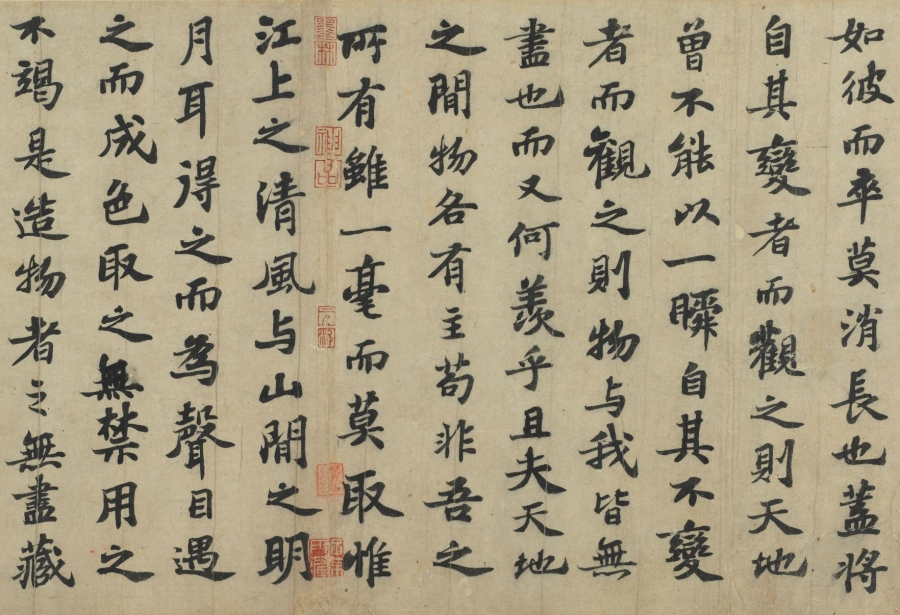 如彼而卒莫消長也蓋將
自其變者而觀之則天地
曾不能以一瞬自其不變
者而觀之則物与我皆無
盡也而又何羨乎且夫天地
之間物各有主苟非吾之
所有雖一毫而莫取惟
江上之清風与山間之明
月耳得之而為聲目遇
之而成色取之無禁用之
不竭是造物者之無盡藏